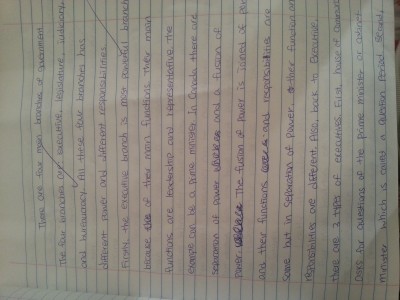 There are four main branches of Government
The four branches are: executive, legislature, judiciary,
and bureaucracy. All these four branches has
different power and different responsibilities.
Firstly, the executive branch is most powerful branch
because of their main functions. Their main
functions are leadership and representative. the
example can be a prime minister. In Canada there are
seperation of power and a fusion of
power. The fusion of power is joined of power
and their functions and responsibilities are
same but in separation of power, their function and
responsibilities are different. Also, back to Executive,
there are 2 types of executives. First, house of commons
Deals for questions of the prime minister or cabinet
minister which is called a Question Period. Second,